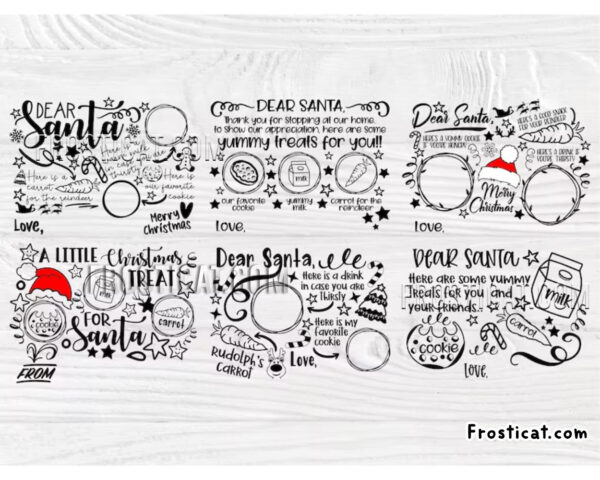 DEAR
Santa
Here is milk
in case
you are
thirsty
Here is a
carrot
for the reindeer
Here is
our favorite
cookie
Love,
Merry
Christmas
DEAR SANTA,
Thank you for stopping at our home.
to show our appreciation, here are some
yummy treats for you!!
milk
our favorite
cookie
yummy
milk
carrot for the
reindeer
Love,
Dear Santa,
HERE'S A GOOD SNACK
FOR YOUR REINDEER
HERE'S A YUMMY COOKIE
IF YOU'RE HUNGRY
HERE'S A DRINK IF
YOU'RE THIRSTY
Merry
Christmas
Love,
A LITTLE Christmas
TREAT
milk
cookie
FOR
Santa
carrot
FROM
Dear Santa,
Here is a drink
in case you are
Thirsty
Here is my
favorite
cookie
RUDOLPH'S
CARROT
Love,
DEAR SANTA
Here are some yummy
Treats for you and
your friends..
milk
cookie
carrot
Love,
Frosticat.com